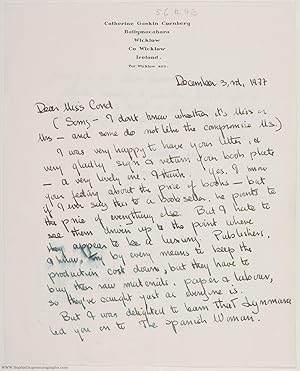 56 & 43
Catherine Gaskin Cornberg
Ballymacahara
Wicklow
Co Wicklow
Ireland.
Tel: Wicklow
December 3rd, 1977
Dear Miss Cord
(Sorry - I don't know whether it's Miss or
Mrs - and some do not like the compromise Ms.)
I was very happy to have your letter, &
very gladly sign & return your book plate
- a very lovely one, I think. Yes, I know
your feeling about the price of books - but
if I will say this to a book seller, he points to
the price of everything else. But I hate to
see them driven up to the point where
they appear to be a luxury. Publishers
try by every means to keep the
production cost down, but they have to
buy their raw materials, paper & labour,
so they're caught just as everyone is.
But I was delighted to learn that Lynmara
led you on to The Spanish Woman.